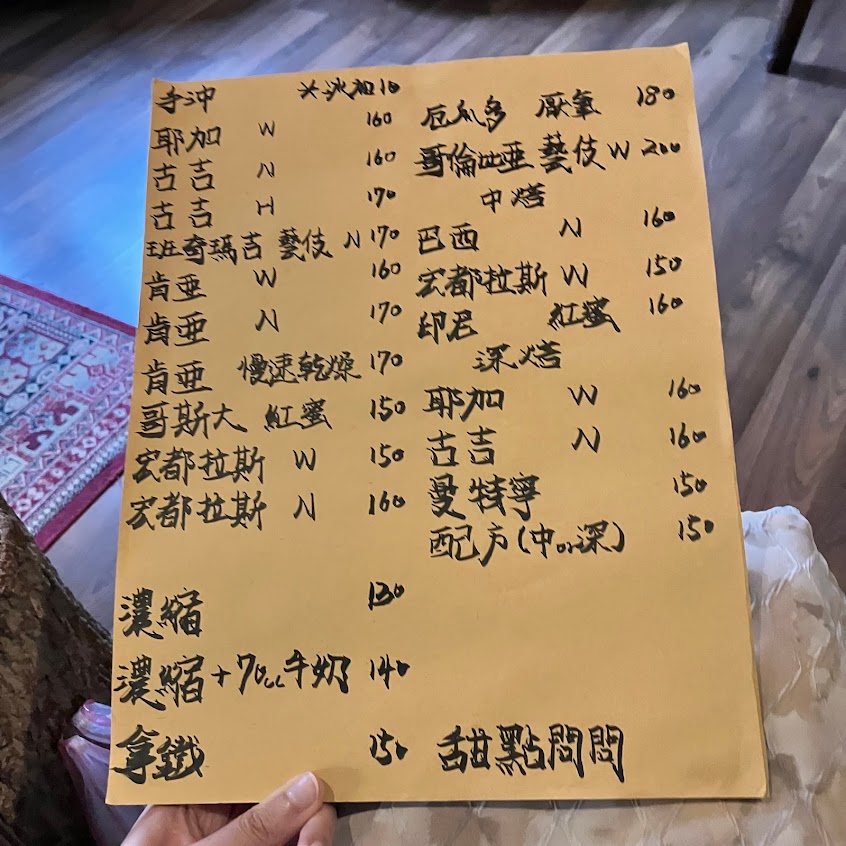 手沖 ※冰加10
耶加 W 160
古吉 N 160
古吉 H 170
班奇瑪吉 藝伎 N 170
肯亞 W 160
肯亞 N 170
肯亞 慢速乾燥 170
哥斯大 紅蜜 150
宏都拉斯 W 150
宏都拉斯 N 160
厄瓜多 厭氧 180
哥倫比亞 藝伎 W 200
中焙
巴西 N 160
宏都拉斯 W 150
印尼 紅蜜 160
深焙
耶加 W 160
古吉 N 160
曼特寧 150
配方(中or深) 150
濃縮 130
濃縮+70cc牛奶 140
拿鐵 150
甜點問問